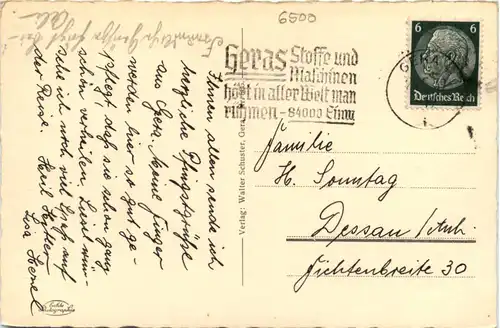 6500
Heras Stoffe und
Maschinen
hört in aller Welt man
rühmen - 84000 Einw
6 6
Deutsches Reich
Familie
H. Sonntag
Dessau/Anh.
Fichtenbreite 30
Verlag: Walter Schuster, Gera
Ihnen allen sende ich
herzliche Pfingstgrüße
aus Gera. Meine Finger
werden hier so gut ge-
pflegt daß sie schon ganz
schön verheilen. Sonst wün-
sche ich noch viel Spaß auf
der Reise. Heil Hitler
Echte Photographie